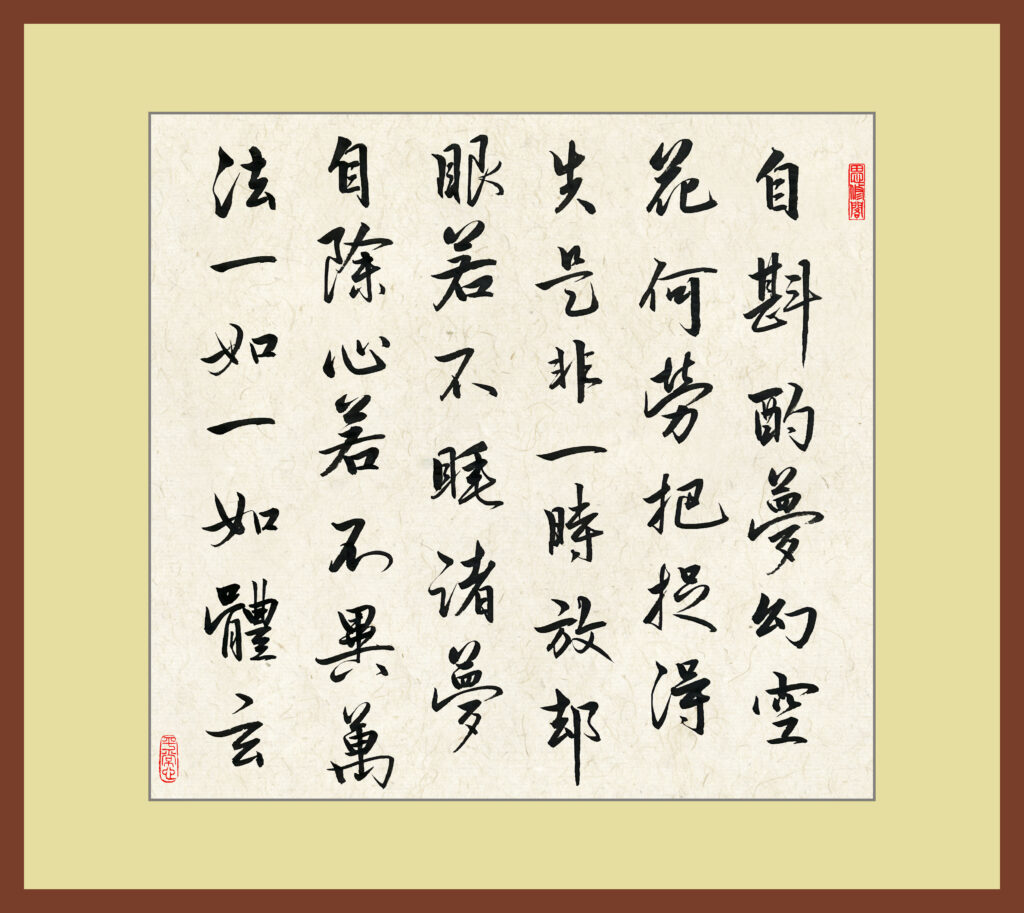 思修閣
自斟酌夢幻空
花何勞把捉得
失是非一時放却
眼若不睡諸夢
自除心若不異萬
法一如一如體玄
平常心